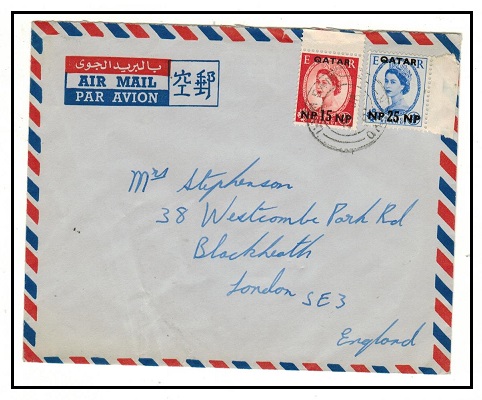 بالبريد الجوى
AIR MAIL
PAR AVION
空郵
E QATAR R
NP 15 NP
E QATAR R
NP 25 NP
Mrs Stephenson
38 Westcombe Park Rd
Blackheath
London SE3
England